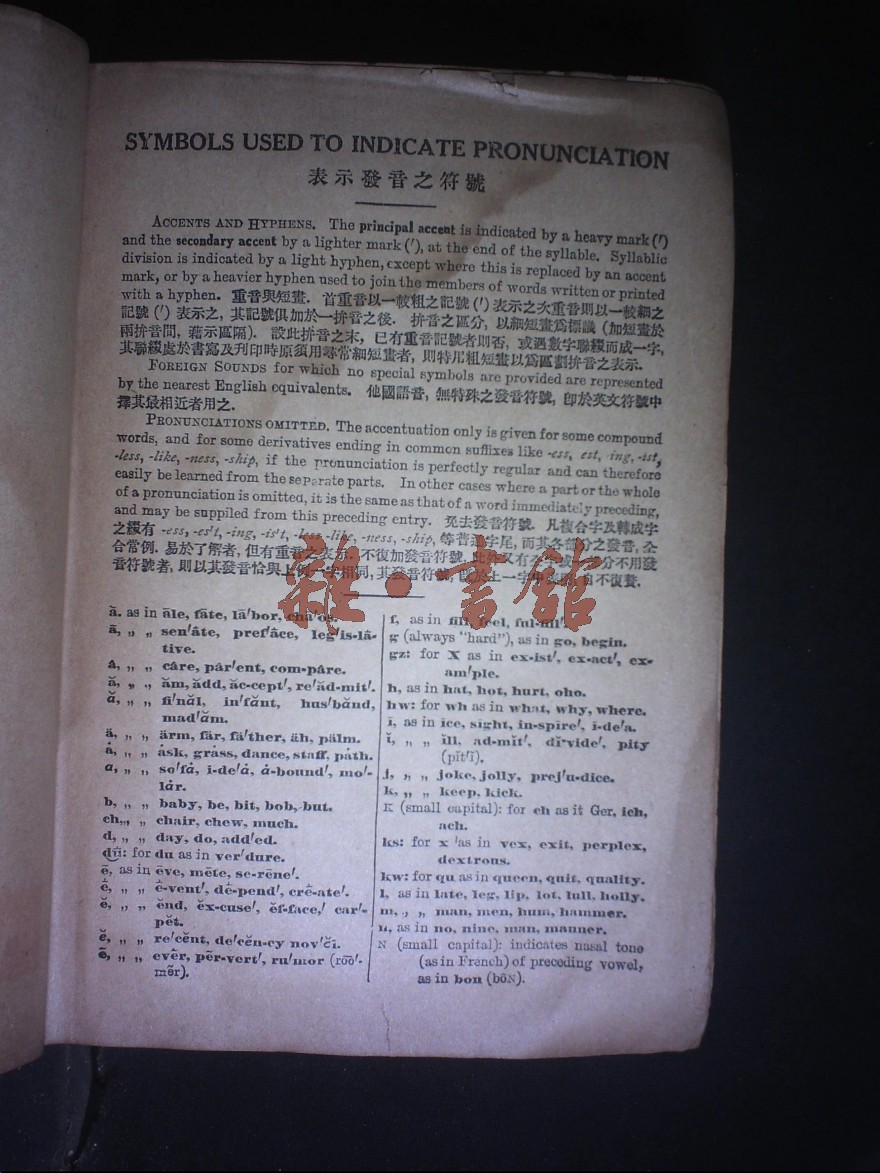 SYMBOLS USED TO INDICATE PRONUNCIATION
表示發音之符號
ACCENTS AND HYPHENS. The principal accent is indicated by a heavy mark (′)
and the secondary accent by a lighter mark (′), at the end of the syllable. Syllablic
division is indicated by a light hyphen, except where this is replaced by an accent
mark, or by a heavier hyphen used to join the members of words written or printed
with a hyphen. 重音與短畫. 首重音以一較粗之記號 (′) 表示之次重音則以一較細之
記號 (′) 表示之, 其記號俱加於一拼音之後. 拼音之區分, 以細短畫爲標識 (加短畫於
兩拼音間, 藉示區隔). 設此拼音之末, 已有重音記號者則否, 或遇數字聯綴而成一字,
其聯綴處於書寫及刋印時原須用尋常細短畫者, 則特用粗短畫以爲區劃拼音之表示.
FOREIGN SOUNDS for which no special symbols are provided are represented
by the nearest English equivalents. 他國語音, 無特殊之發音符號, 卽於英文符號中
擇其最相近者用之.
PRONUNCIATIONS OMITTED. The accentuation only is given for some compound
words, and for some derivatives ending in common suffixes like -ess, est, ing, -ist,
-less, -like, -ness, -ship, if the pronunciation is perfectly regular and can therefore
easily be learned from the separate parts. In other cases where a part or the whole
of a pronunciation is omitted, it is the same as that of a word immediately preceding,
and may be suppiled from this preceding entry. 免去發音符號. 凡複合字及轉成字
之綴有 -ess, -es't, -ing, -is't, -less -like, -ness, -ship, 等普通字尾, 而其各部分之發音, 全
合常例. 易於了解者, 但有重音之表示. 不復加發音符號, 此外又有 分不用發
音符號者, 則以其發音恰與上例一字相同, 其發音符號, 於上一字中 自不復贅.
雜·書館
ā. as in āle, fāte, lā′bor, chā′os.
ā̇, „ „ sen′ȧte, pref′ȧce, leg′is-lȧ-
tive.
â, „ „ câre, pâr′ent, com-pâre.
ă, „ „ ăm, ădd, ăc-cept′, re′ăd-mit′.
ă, „ „ fi′năl, in′fănt, hus′bănd,
mad′ăm.
ä, „ „ ärm, fär, fä′ther, äh, pälm.
ȧ, „ „ ȧsk, grȧss, dance, staff, pȧth.
a, „ „ so′fȧ, i-de′ȧ, ȧ-bound′, mo′-
lȧr.
b, „ „ baby, be, bit, bob, but.
ch,„ „ chair, chew, much.
d, „ „ day, do, add′ed.
dū: for du as in ver′dure.
ē, as in ēve, mēte, se-rēne′.
ė, „ „ ė-vent′, dė-pend′, crė-ate′.
ĕ, „ „ ĕnd, ĕx-cuse′, ĕf-face,′ car′-
pĕt.
ĕ, „ „ re′cĕnt, de′cĕn-cy nov′ĕl.
ẽ, „ „ evẽr, pẽr-vert′, ru′mor (rōō′-
mẽr).
f, as in fill, feel, ful-fill′.
g (always "hard"), as in go, begin.
gz: for X as in ex-ist′, ex-act′, ex-
am′ple.
h, as in hat, hot, hurt, oho.
hw: for wh as in what, why, where.
ī, as in ice, sight, in-spire′, i-de′a.
ĭ, „ „ ĭll, ad-mĭt′, dĭ-vide′, pity
(pĭt′ĭ).
j, „ „ joke, jolly, prej′u-dice.
k, „ „ keep, kick.
K (small capital): for ch as it Ger, ich,
ach.
ks: for x ′as in vex, exit, perplex,
dextrous.
kw: for qu as in queen, quit, quality.
l, as in late, leg, lip, lot, lull, holly.
m, „ „ man, men, hum, hammer.
n, as in no, nine, man, manner.
N (small capital): indicates nasal tone
(as in French) of preceding vowel,
as in bon (bôN).